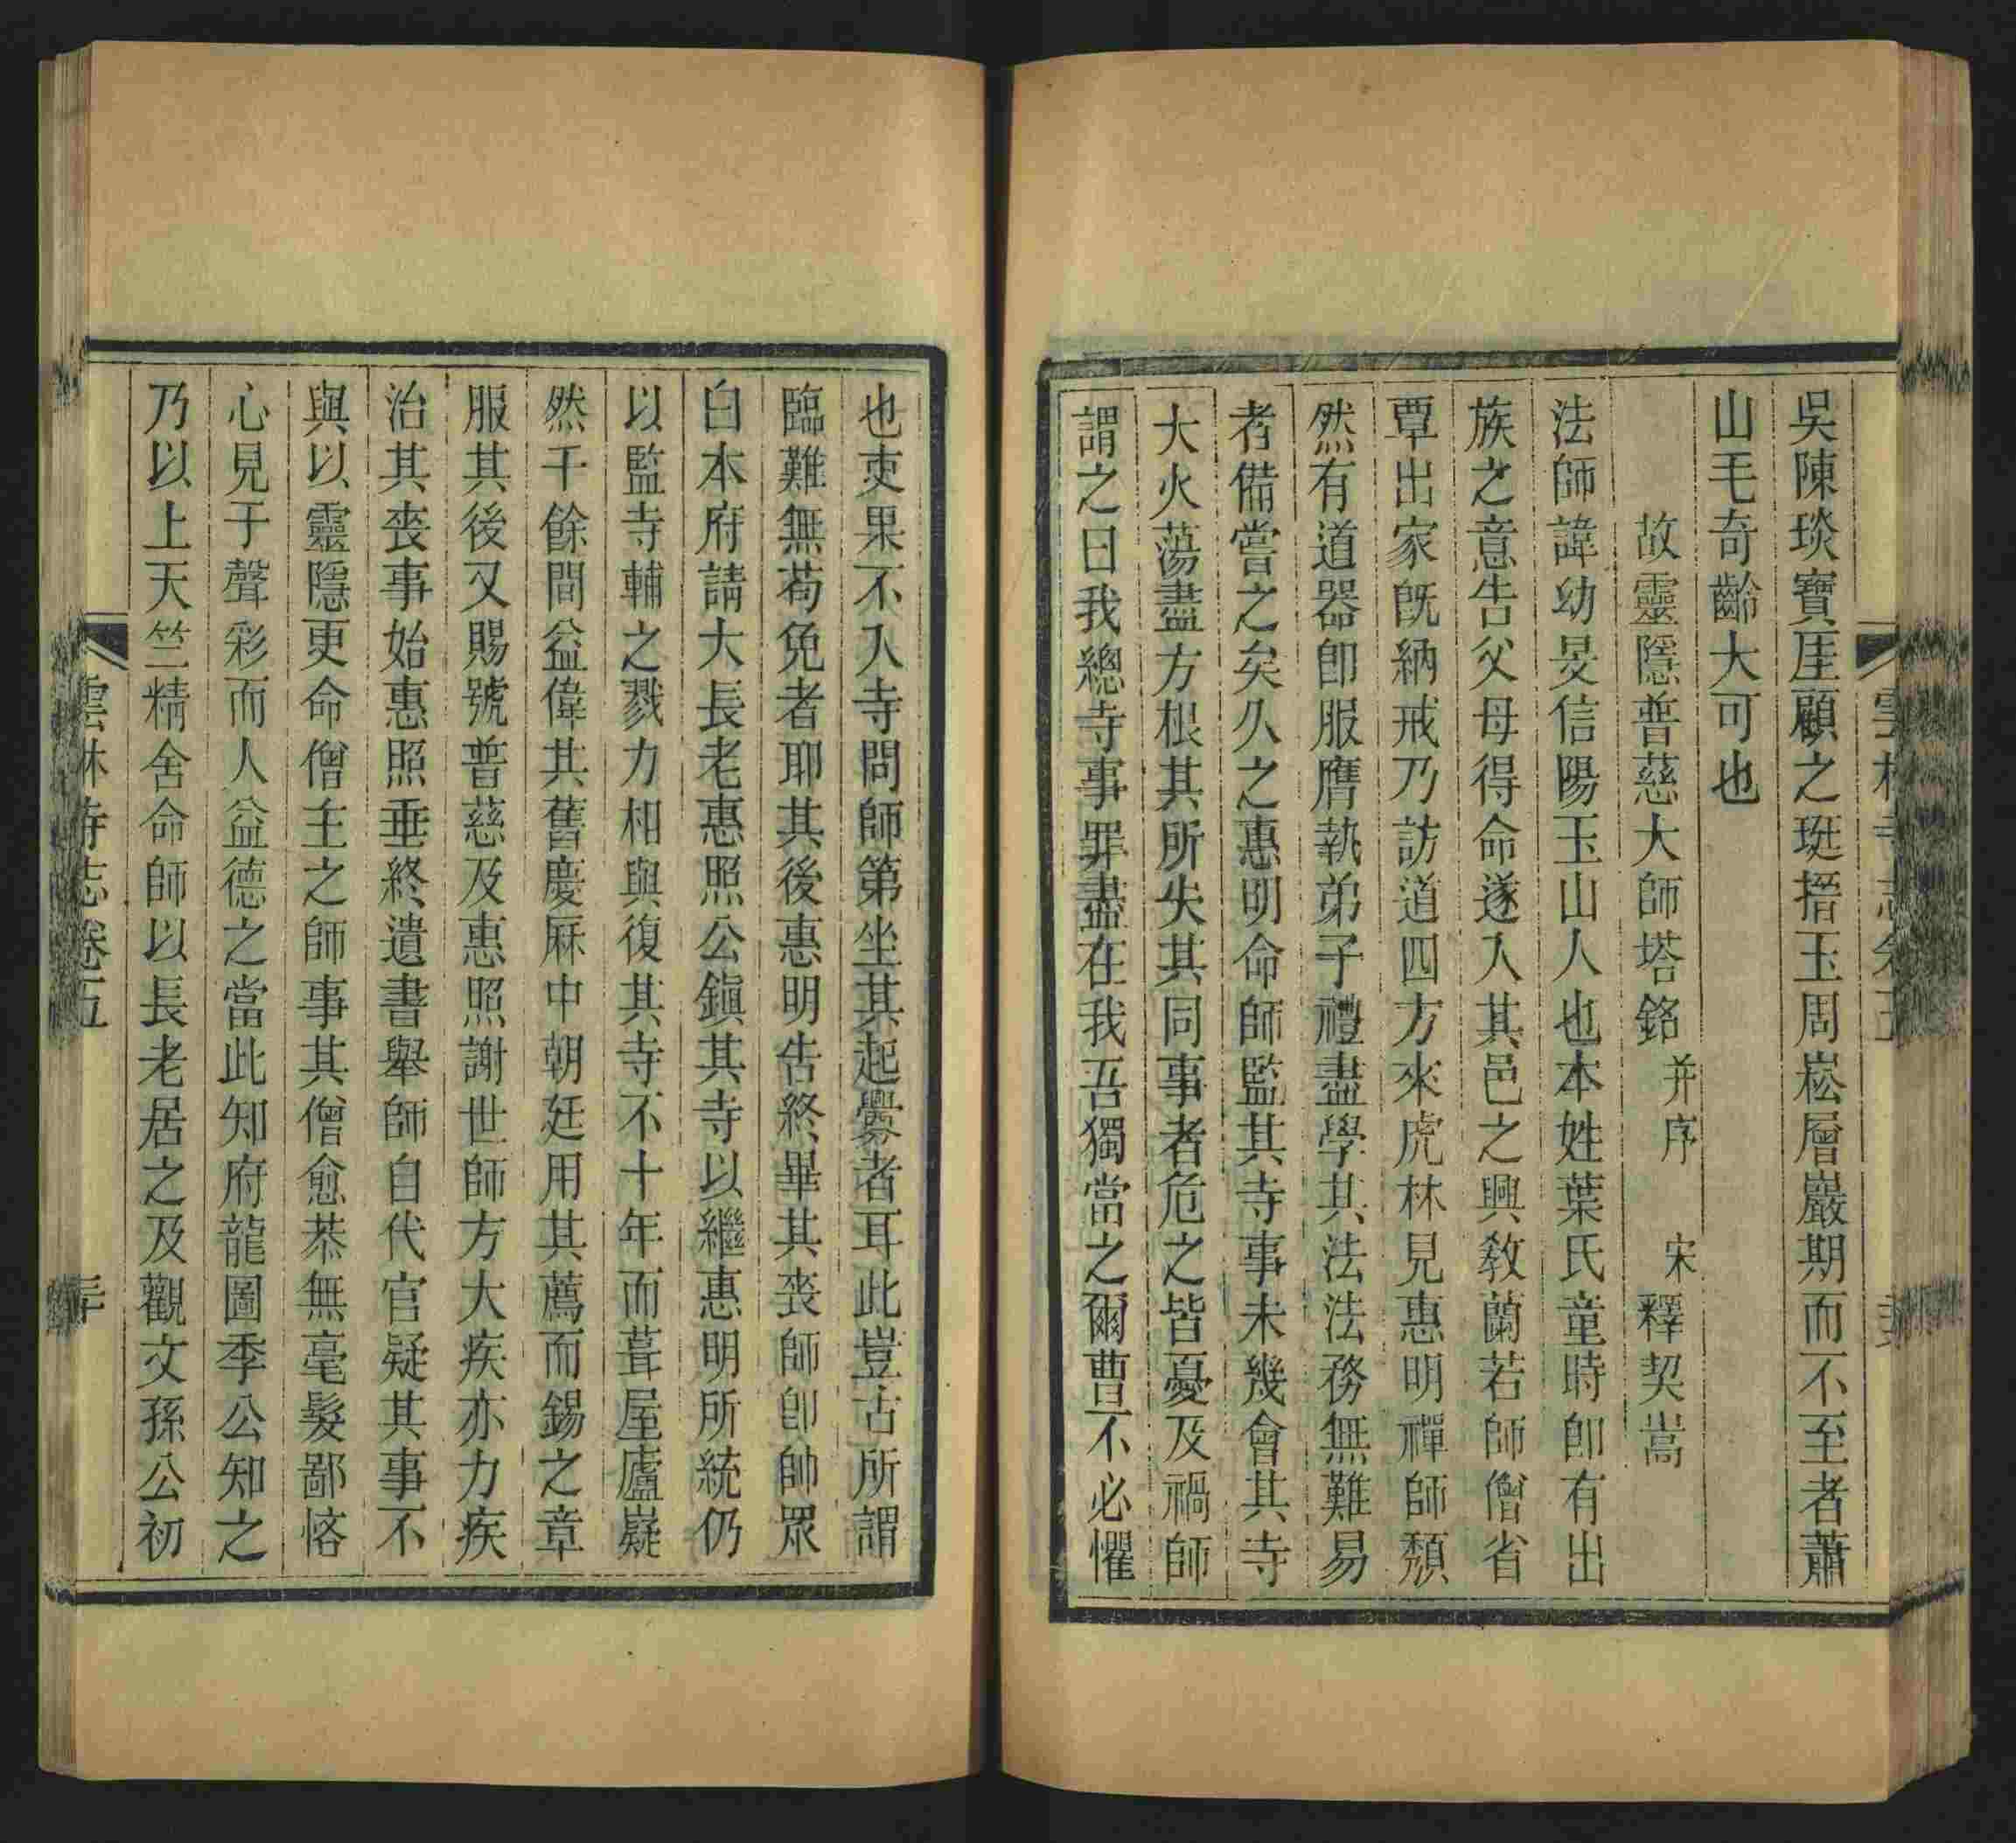 吳陳琰寶厓顧之珽搢玉周崧層巖期而不至者蕭
山毛奇齡大可也
故靈隱普慈大師塔銘 并序 宋 釋契嵩
法師諱幼旻信陽玉山人也本姓葉氏童時卽有出
族之意告父母得命遂入其邑之興敎蘭若師僧省
覃出家旣納戒乃訪道四方來虎林見惠明禪師頽
然有道器卽服膺執弟子禮盡學其法法務無難易
者備嘗之矣久之惠明命師監其寺事未幾會其寺
大火蕩盡方根其所失其同事者危之皆憂及禍師
謂之曰我總寺事罪盡在我吾獨當之爾曹不必懼
也吏果不入寺問師第坐其起爨者耳此豈古所謂
臨難無苟免者耶其後惠明告終畢其喪師卽帥眾
白本府請大長老惠照公鎭其寺以繼惠明所統仍
以監寺輔之戮力相與復其寺不十年而葺屋廬嶷
然千餘間益偉其舊慶厤中朝廷用其薦而錫之章
服其後又賜號普慈及惠照謝世師方大疾亦力疾
治其喪事始惠照垂終遺書舉師自代官疑其事不
與以靈隱更命僧主之師事其僧愈恭無毫髮鄙悋
心見于聲彩而人益德之當此知府龍圖季公知之
乃以上天竺精舍命師以長老居之及觀文孫公初
雲林寺志卷五